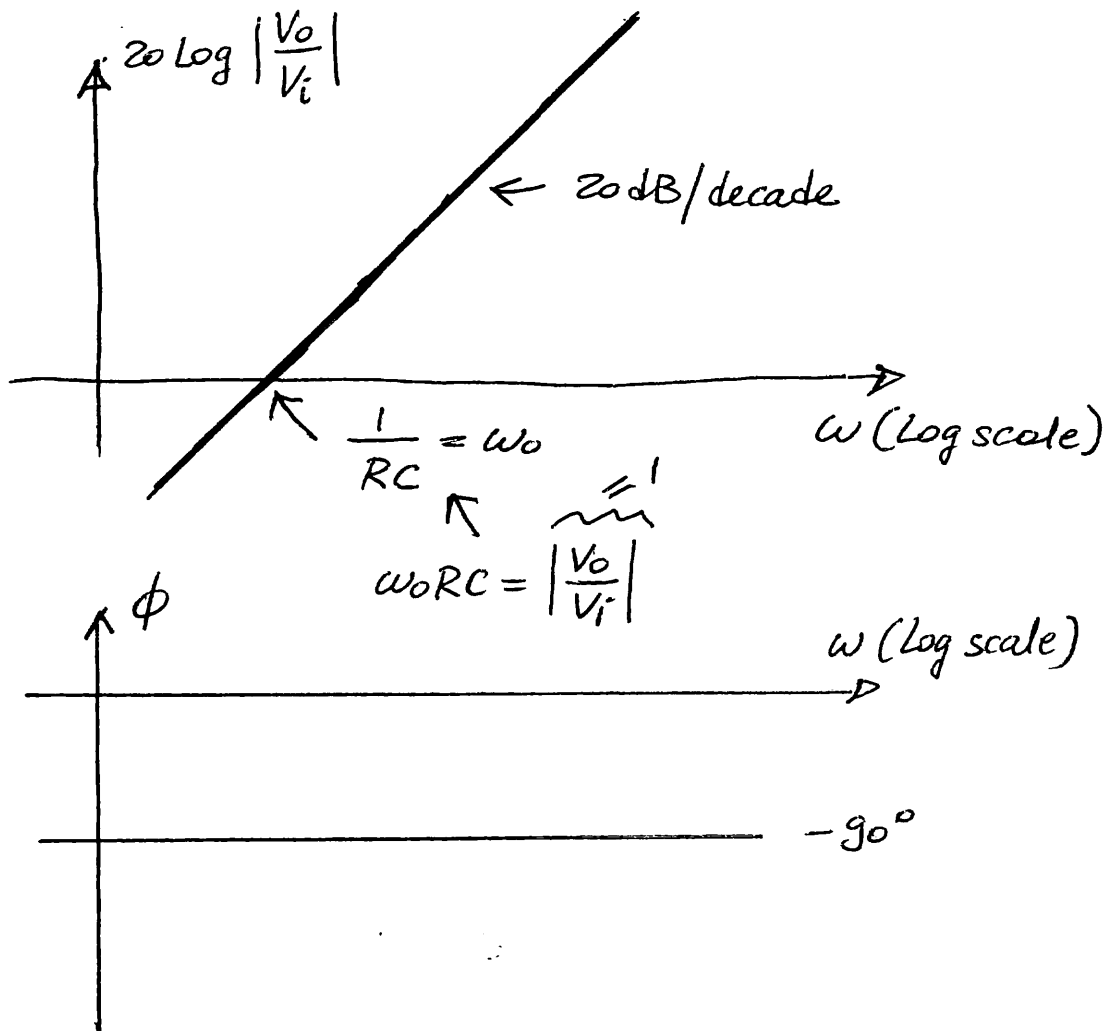 20 Log |Vo/Vi|
20 dB/decade
ω (Log scale)
1/RC = ωo
= 1
ωoRC = |Vo/Vi|
ϕ
ω (Log scale)
-90°